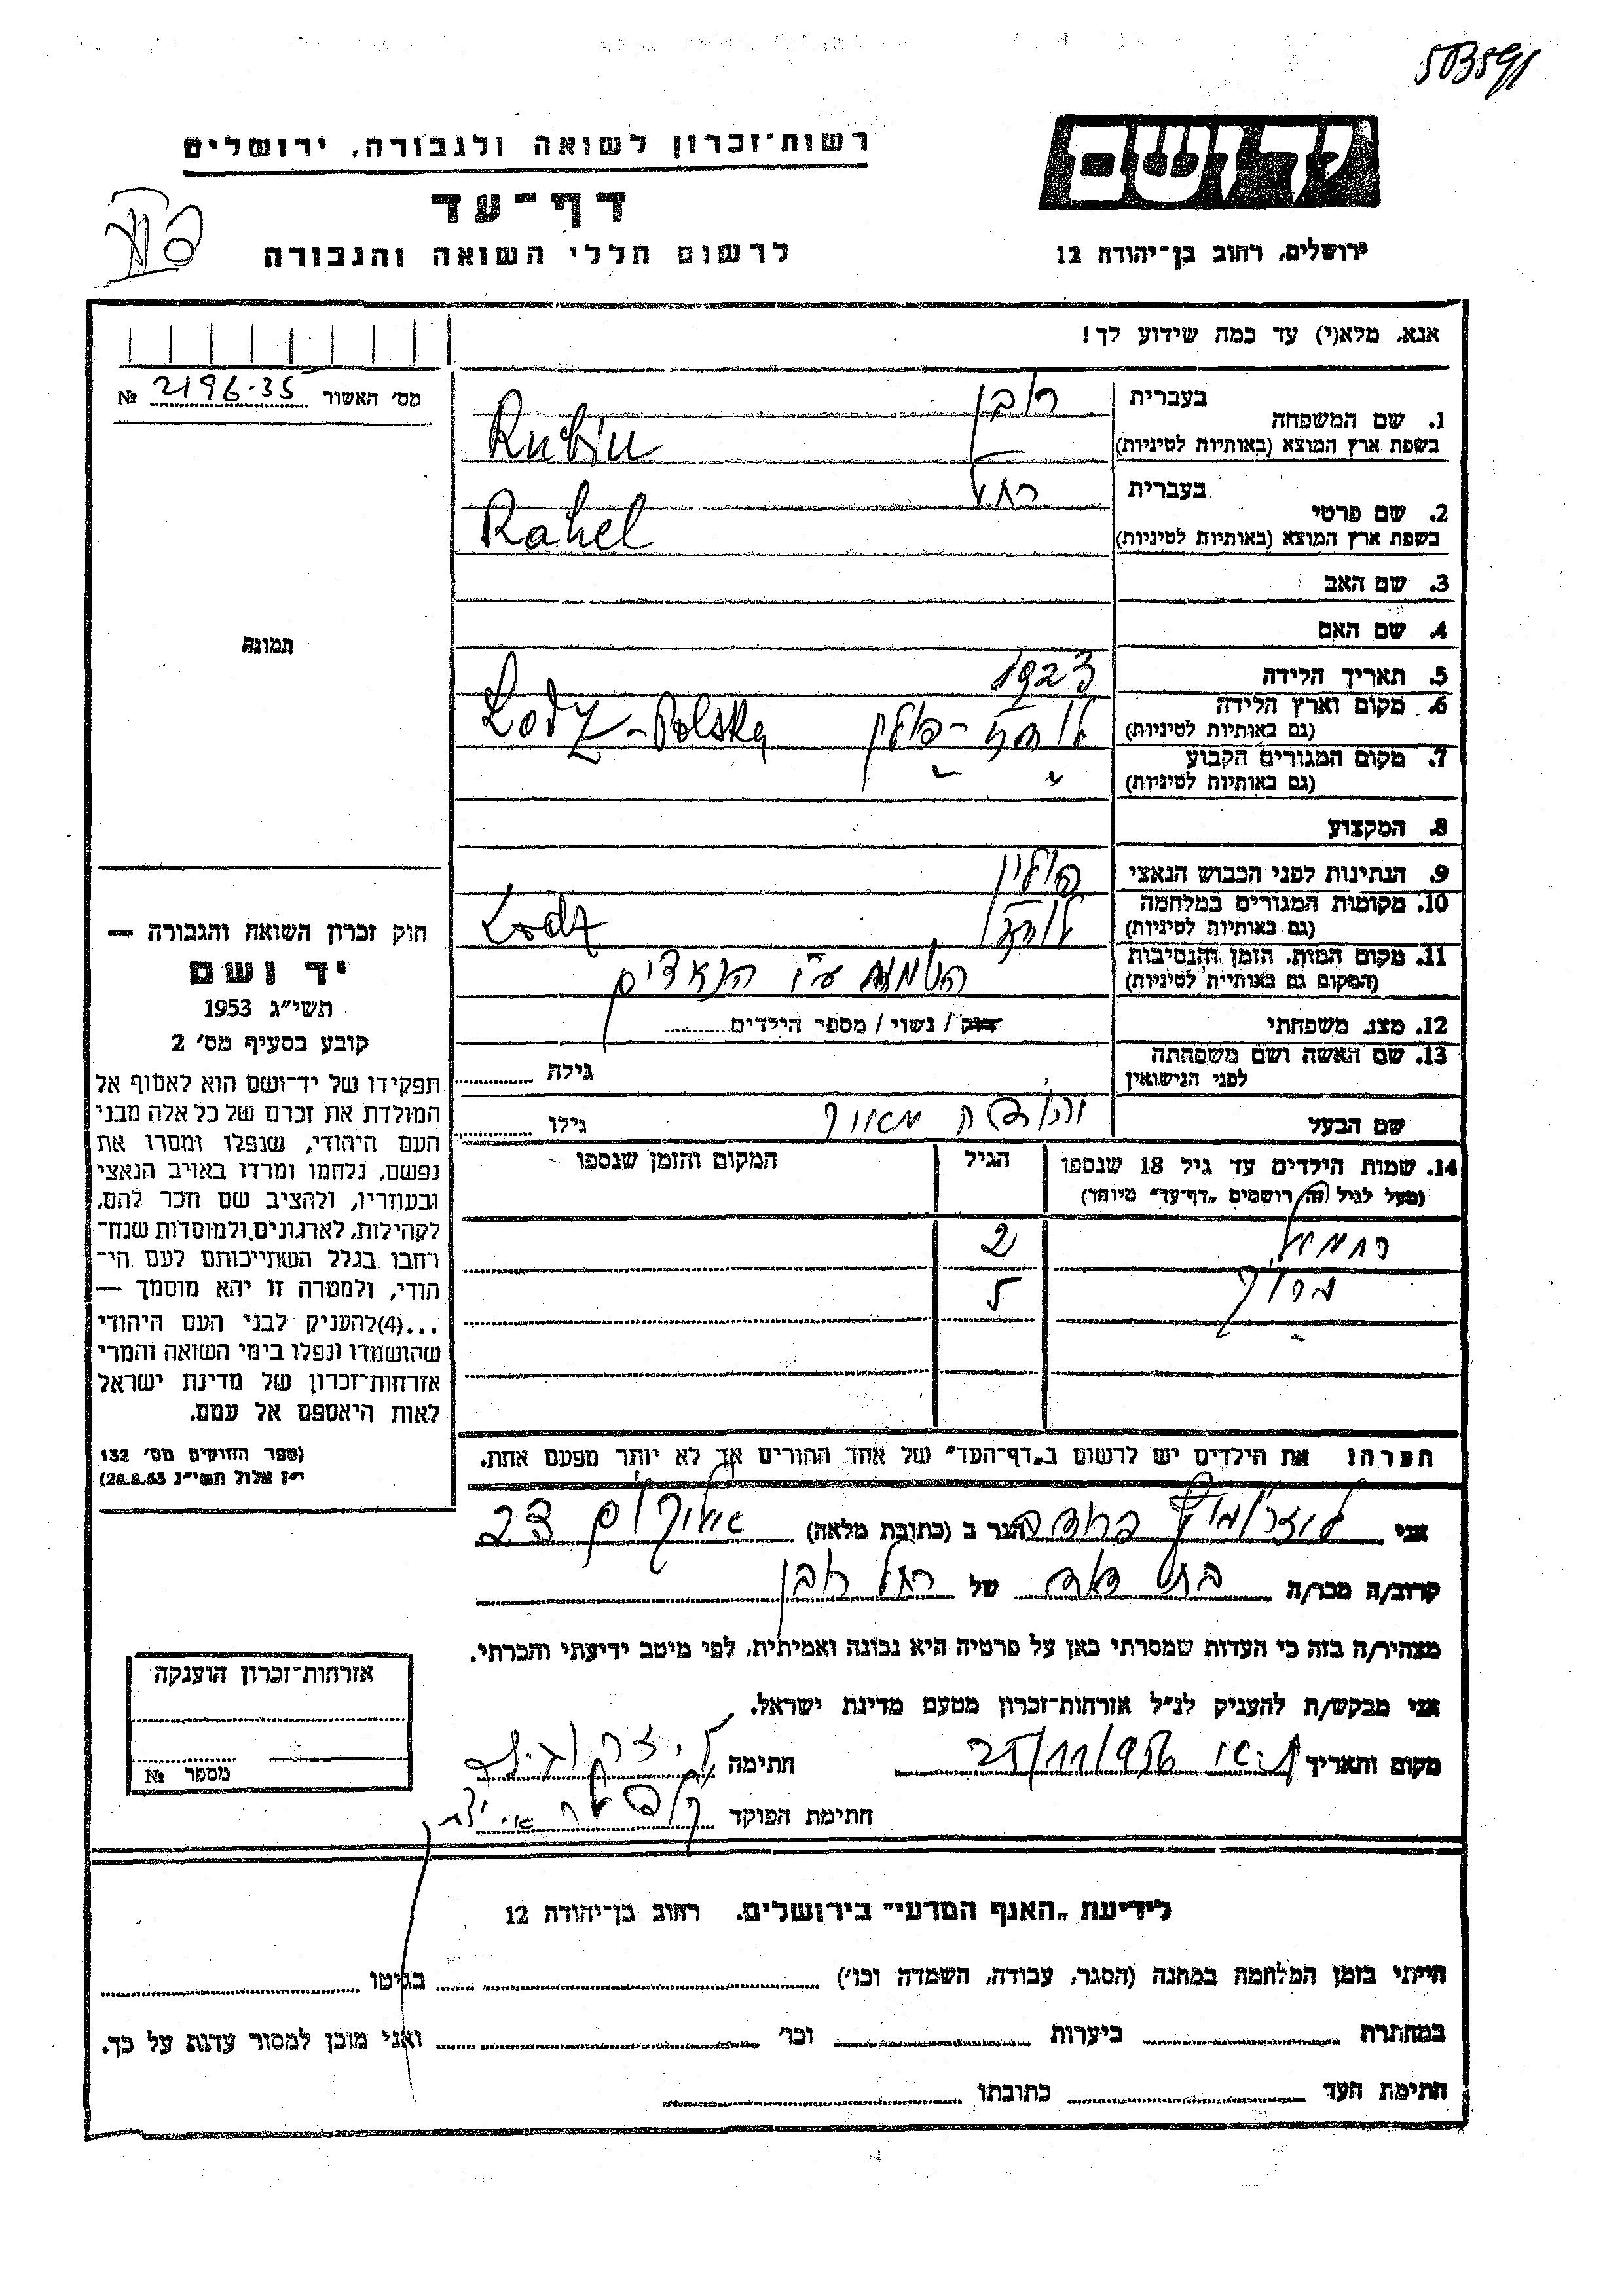 5B591
רשות־זכרון לשואה ולגבורה, ירושלים
יד ושם
דף־עד
לרשום חללי השואה והגבורה
ירושלים, רחוב בן־יהודה 12
אנא, מלא(י) עד כמה שידוע לך!
מס׳ האשור № 2196-35
1. שם המשפחה
בעברית רובין
בשפת ארץ המוצא (באותיות לטיניות) Rubin
2. שם פרטי
בעברית רחל
בשפת ארץ המוצא (באותיות לטיניות) Rahel
3. שם האב
4. שם האם
תמונה
5. תאריך הלידה 1923
6. מקום וארץ הלידה
(גם באותיות לטיניות) פולין Lodz - Polska
7. מקום המגורים הקבוע
(גם באותיות לטיניות) " "
8. המקצוע
9. הנתינות לפני הכבוש הנאצי פולין
10. מקומות המגורים במלחמה
(גם באותיות לטיניות) Lodz
11. מקום המות, הזמן והנסיבות
(המקום גם באותיות לטיניות) ע״י הנאצים
12. מצב משפחתי רווק / נשוי / מספר הילדים
13. שם האשה ושם משפחתה
לפני הנישואין גילה
שם הבעל גילו
14. שמות הילדים עד גיל 18 שנספו
(מעל לגיל זה רושמים ״דף־עד״ מיוחד)
הגיל
המקום והזמן שנספו
2
5
הערה! את הילדים יש לרשום ב״דף־העד״ של אחד ההורים אך לא יותר מפעם אחת.
חוק זכרון השואה והגבורה —
יד ושם
תשי״ג 1953
קובע בסעיף מס׳ 2
תפקידו של יד־ושם הוא לאסוף אל
המולדת את זכרם של כל אלה מבני
העם היהודי, שנפלו ומסרו את
נפשם, נלחמו ומרדו באויב הנאצי
ובעוזריו, ולהציב שם וזכר להם,
לקהילות, לארגונים ולמוסדות שנח־
רחבו בגלל השתייכותם לעם הי־
הודי, ולמטרה זו יהא מוסמך —
...(4) להעניק לבני העם היהודי
שהושמדו ונפלו בימי השואה והמרי
אזרחות־זכרון של מדינת ישראל
לאות היאספם אל עמם.
(ספר החוקים מס׳ 132
י״ז אלול תשי״ג 28.8.53)
אני הגר ב (כתובת מלאה) 23
קרוב/ה מכר/ה בת דוד של רחל רובין
מצהיר/ה בזה כי העדות שמסרתי כאן על פרטיה היא נכונה ואמיתית, לפי מיטב ידיעתי והכרתי.
אני מבקש/ת להעניק לנ״ל אזרחות־זכרון מטעם מדינת ישראל.
מקום ותאריך 25/11/956 חתימה
חתימת הפוקד
אזרחות־זכרון הוענקה
מספר №
לידיעת ״האגף המדעי״ בירושלים, רחוב בן־יהודה 12
הייתי בזמן המלחמה במחנה (הסגר, עבודה, השמדה וכו׳) בגיטו
במחתרת ביערות וכו׳ ואני מוכן למסור עדות על כך.
חתימת העד כתובתו